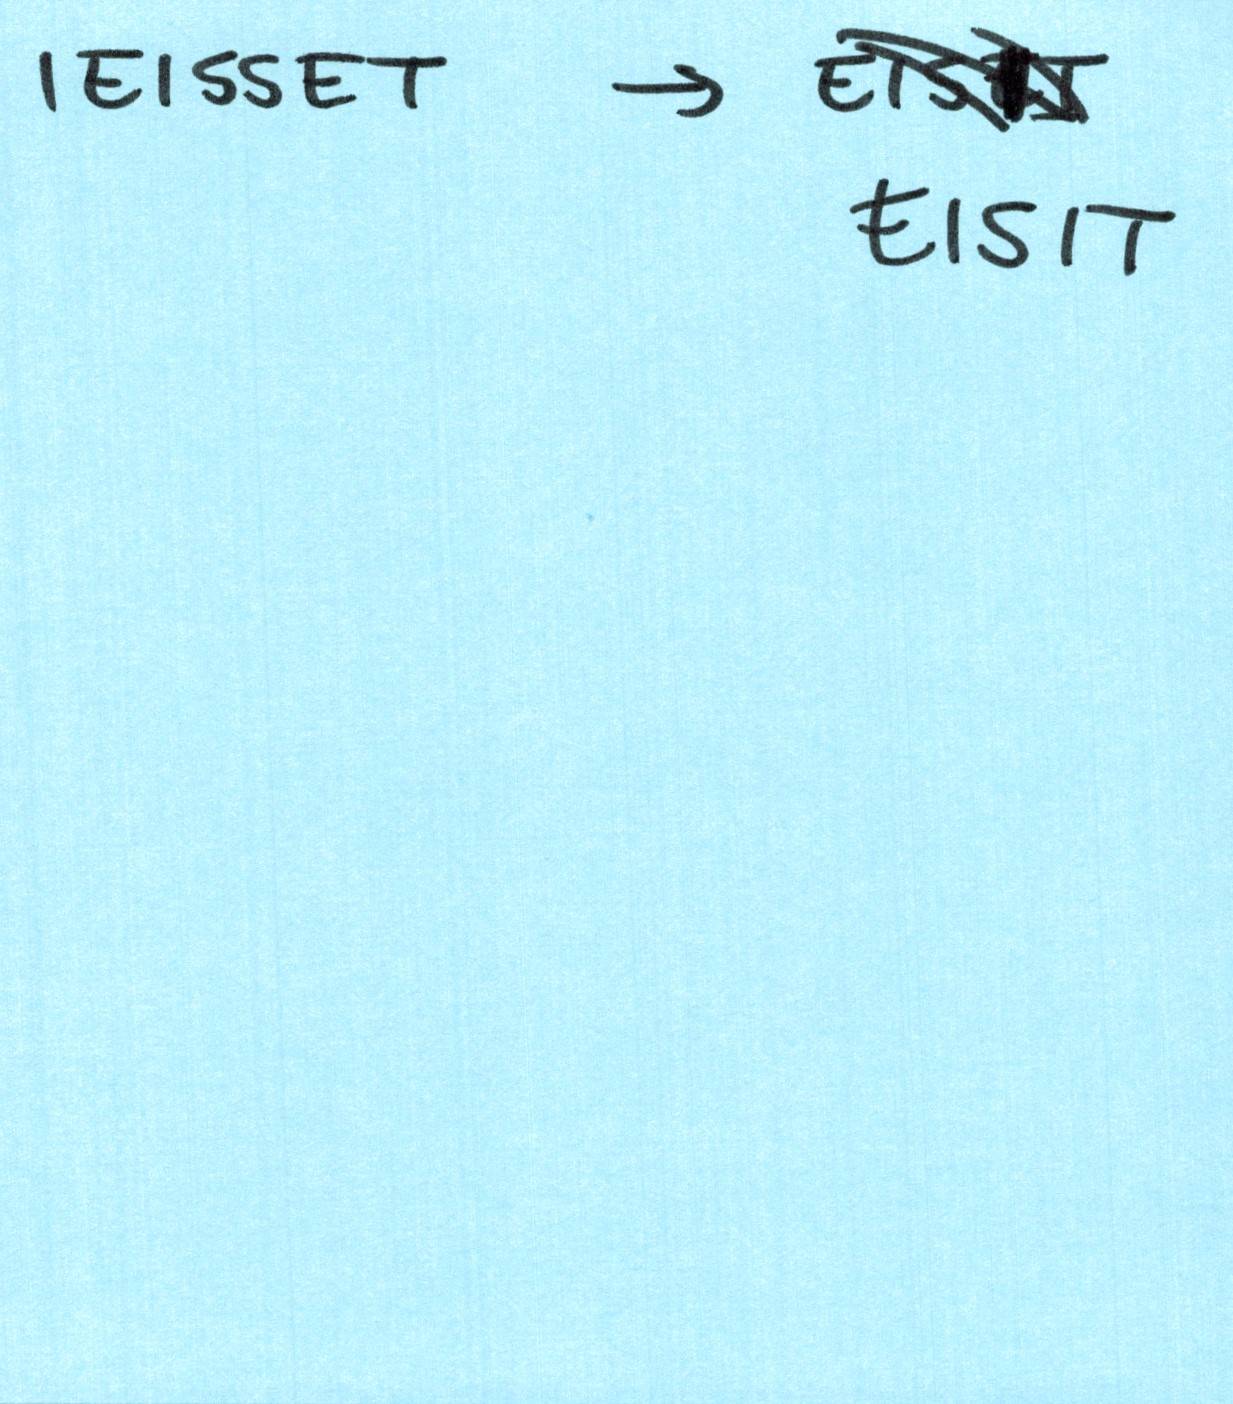 IEISSET → 
EISIT